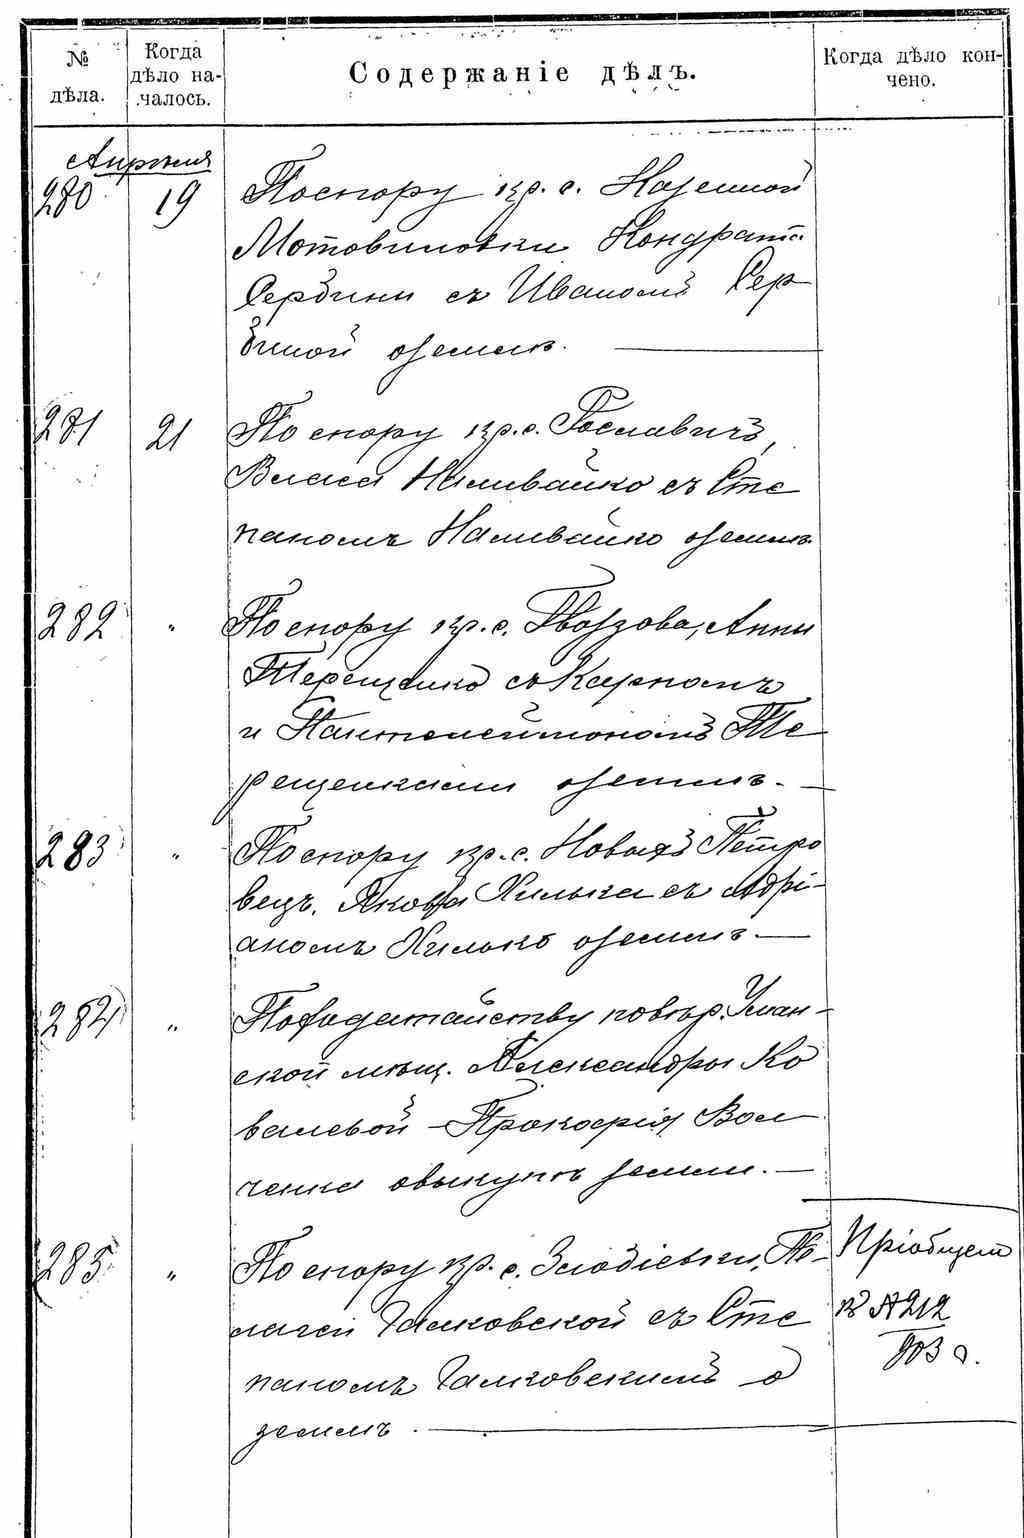 № дѣла.
Когда дѣло на-
чалось.
Содержаніе дѣлъ.
Когда дѣло кон-
чено.
Апрѣля
280 19 По спору кр. с. Казенной
Мотовиловки Кондрата
Сербины съ Иваномъ Сер
биной о землѣ.
281 21 По спору кр. с. Гославичъ,
Власа Наливайко съ Сте
паномъ Наливайко о землѣ
282 " По спору кр. с. Гвоздова, Анны
Терещенко съ Карпомъ
и Пантелеймономъ Те
рещенками о землѣ.
283 " По спору кр. с. Новыхъ Петро
вецъ, Якова Хилька съ Адрі-
аномъ Хилько о землѣ.
284 " По ходатайству повѣр. Уман-
ской мѣщ. Александры Ко
валевой - Прокофія Вол
ченка о выкупѣ земли.
285 " По спору кр. с. Злодіевки, Пе-
лагеи Галковской съ Сте
паномъ Галковскимъ о
землѣ
Пріобщен
къ № 212
903 г.